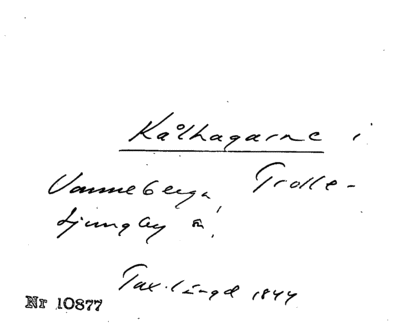 Kålhagarne i
Vanneberga, Trolle-
Ljungby sn.
Tax.längd 1844
Nr 10877